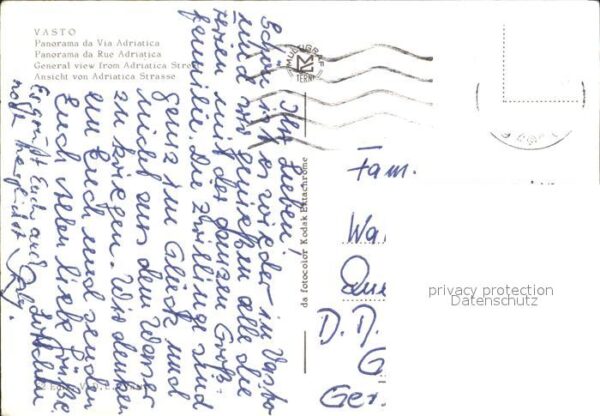 VASTO
Panorama da Via Adriatica
Panorama da Rue Adriatica
General view from Adriatica Stre
Ansicht von Adriatica Strasse
Ihr Lieben!
Schön ist es wieder in Vasto
und wir genießen alle die
Ferien mit der ganzen Groß-
familie. Die Zwillinge sind
ganz im Glück und
nicht aus dem Wasser
zu kriegen. Wir denken
an Euch und senden
Euch vielen liebe Grüße.
Es grüßt Euch auch
noch herzlichst
da fotocolor Kodak Ektachrome
TERNI
Fam.
Wa
D.D.
G
Ger.
privacy protection
Datenschutz